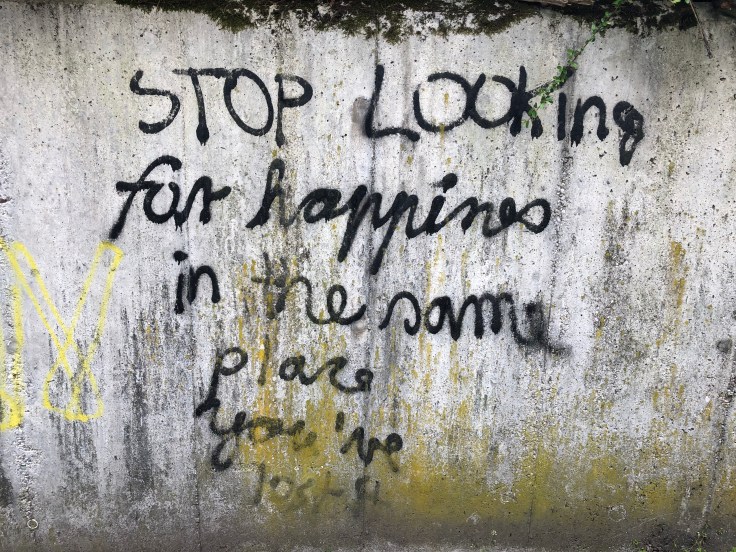 STOP LOOKing
for happines
in the same
place
you've
lost